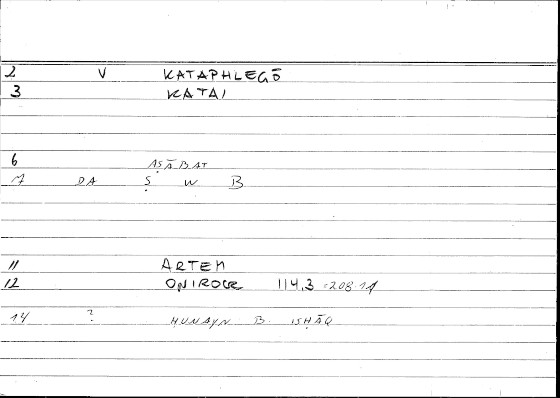 2 V KATAPHLEGŌ
3 KATAI
6 AṢĀBAT
17 DA Ṣ W B
11 ARTEM
12 ONIROCR 114,3 =208.14
14 ? HUNAYN B. ISḤĀQ